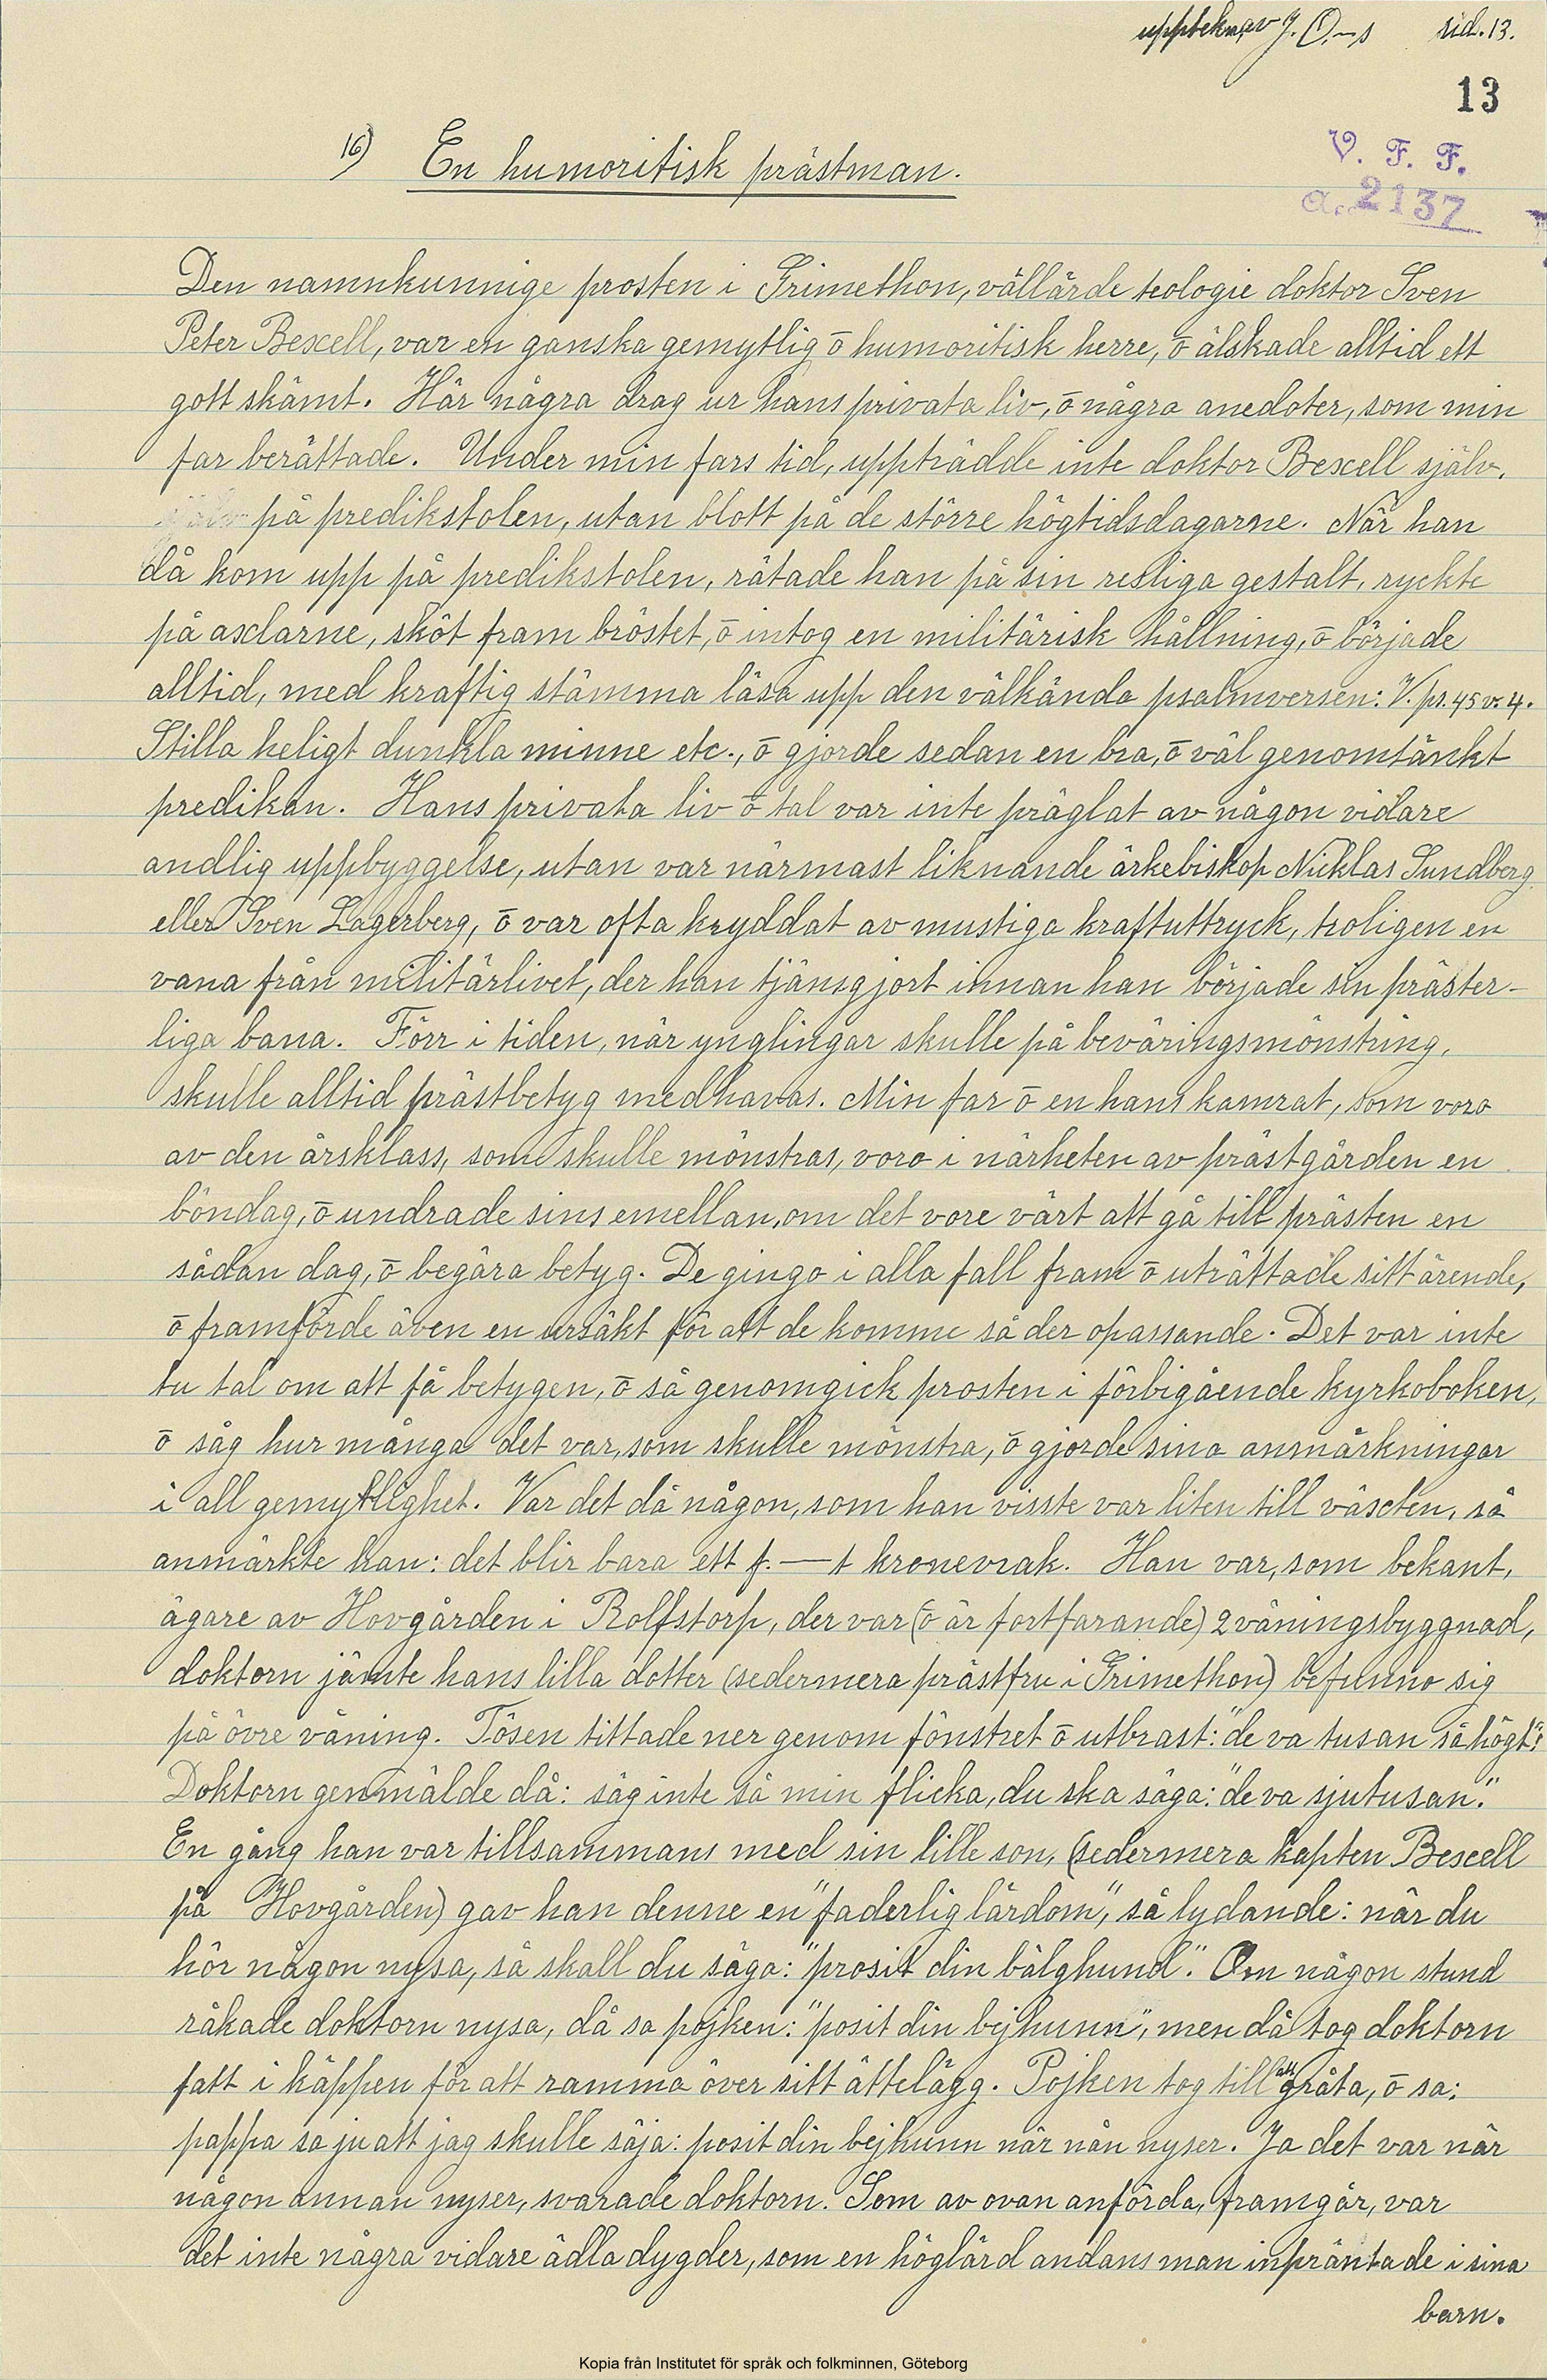 uppteckn. av J. O–s sid. 13.
13
V. F. F.
a. 2137
16) En humoritisk prästman.
Den namnkunnige prosten i Grimethon, vällärde teologie doktor Sven
Peter Bexell, var en ganska gemytlig ō humoritisk herre, ō älskade alltid ett
gott skämt. Här några drag ur hans privata liv, ō några anedoter, som min
far berättade. Under min fars tid, uppträdde inte doktor Bexell själv.
på predikstolen, utan blott på de större högtidsdagarne. När han
då kom upp på predikstolen, rätade han på sin resliga gestalt, ryckte
på axlarne, sköt fram bröstet, ō intog en militärisk hållning, ō började
alltid, med kraftig stämma läsa upp den välkända psalmversen: V. ps. 45 v. 4.
Stilla heligt dunkla minne etc., ō gjorde sedan en bra, ō väl genomtänkt
predikan. Hans privata liv ō tal var inte präglat av någon vidare
andlig uppbyggelse, utan var närmast liknande ärkebiskop Nicklas Sundberg
eller Sven Lagerberg, ō var ofta kryddat av mustiga kraftuttryck, troligen en
vana från militärlivet, der han tjänsgjort innan han började sin präster-
liga bana. Förr i tiden, när ynglingar skulle på beväringsmönstring,
skulle alltid prästbetyg medhavas. Min far ō en hans kamrat, som voro
av den årsklass, som skulle mönstras, voro i närheten av prästgården en
böndag, ō undrade sins emellan, om det vore värt att gå till prästen en
sådan dag, ō begära betyg. De gingo i alla fall fram ō uträttade sitt ärende,
ō framförde även en ursäkt för att de komme så der opassande. Det var inte
tu tal om att få betygen, ō så genomgick prosten i förbigående kyrkoboken,
ō såg hur många det var, som skulle mönstra, ō gjorde sina anmärkningar
i all gemytlighet. Var det då någon, som han visste var liten till växten, så
anmärkte han: det blir bara ett f.—t kronevrak. Han var, som bekant,
ägare av Hovgården i Rolfstorp, der var (ō är fortfarande) 2 våningsbyggnad,
doktorn jämte hans lilla dotter (sedermera prästfru i Grimethon) befunno sig
på övre våning. Tösen tittade ner genom fönstret ō utbrast: "de va tusan så högt".
Doktorn genmälde då: säg inte så min flicka, du ska säga: "de va sjutusan."
En gång han var tillsammans med sin lille son, (sedermera kapten Bexell
på Hovgården) gav han denne en "faderlig lärdom", så lydande: när du
hör någon nysa, så skall du säga: "prosit din bälghund". Om någon stund
råkade doktorn nysa, då sa pojken: "posit din bejhunn", men då tog doktorn
fatt i käppen för att ramma över sitt ättelägg. Pojken tog till att gråta, ō sa:
pappa sa ju att jag skulle säja: posit din bejhunn när nån nyser. Ja det var när
någon annan nyser, svarade doktorn. Som av ovan anförda, framgår, var
det inte några vidare ädla dygder, som en höglärd andans man inpräntade i sina
barn.
Kopia från Institutet för språk och folkminnen, Göteborg